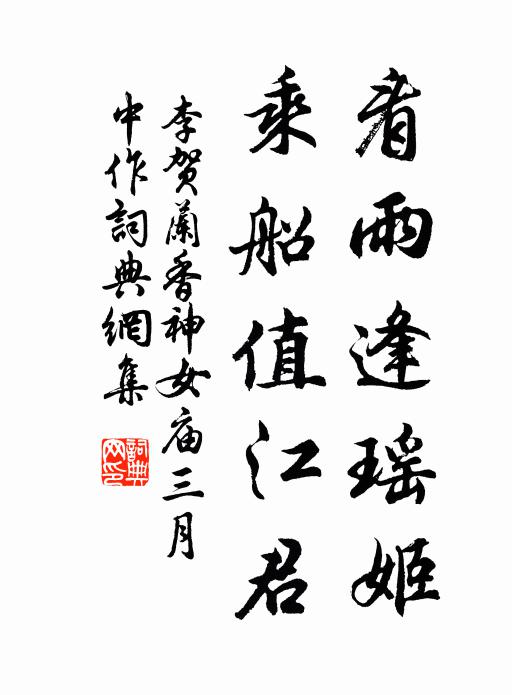 看雨逢瑤姬
乘船值江君
李賀蘭香神女庙三月
中作詞典網集
詞典
网印